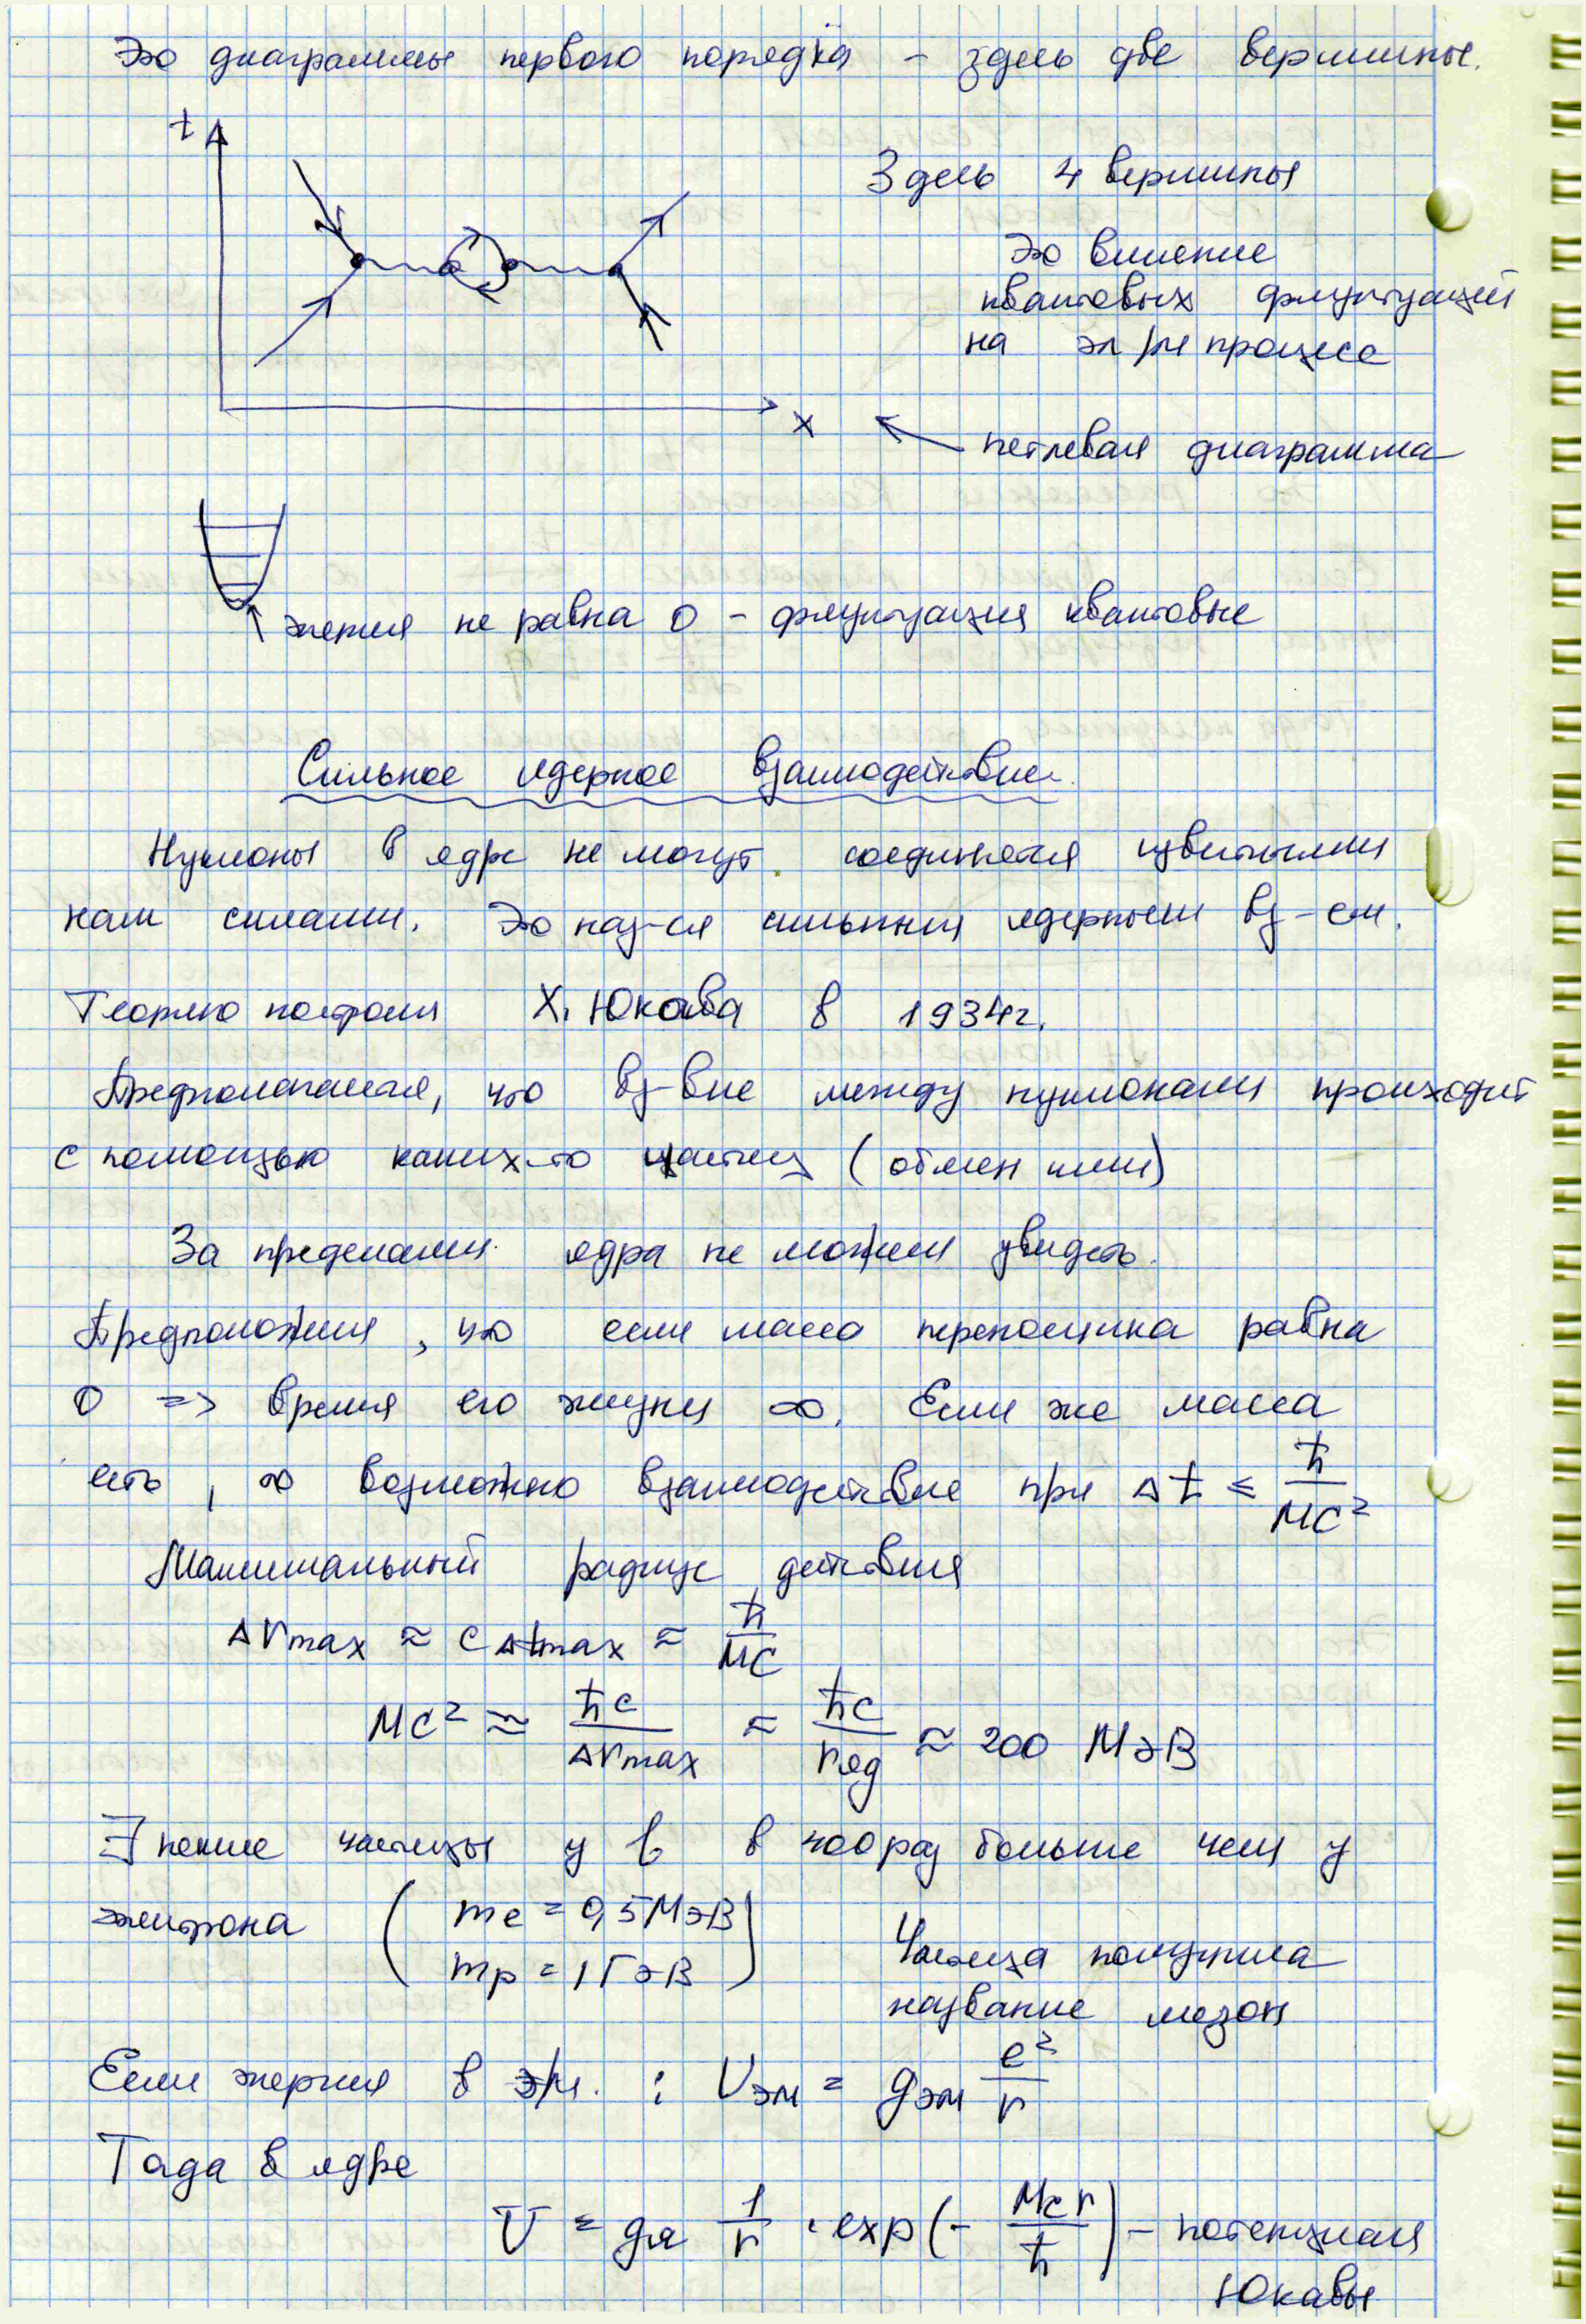 Это диаграммы первого порядка - здесь две вершины.
t
Здесь 4 вершины
Это влияние
квантовых флуктуаций
на эл/м процесс
x
петлевая диаграмма
энергия не равна 0 - флуктуация квантовые
Сильное ядерное взаимодействие.
Нуклоны в ядре не могут соединяться известными
нам силами. Это наз-ся сильным ядерным вз-ем.
Теорию построил Х. Юкава в 1934г.
Предполагается, что вз-вие между нуклонами происходит
с помощью каких-то частиц (обмен ими)
За пределами ядра не можем увидеть.
Предположим, что если масса переносчика равна
0 => время его жизни ∞. Если же масса
есть, то возможно взаимодействие при Δt ≤ ħ/MC²
Максимальный радиус действия
Δrmax ≈ cΔtmax ≈ ħ/MC
MC² ≈ ħc/Δrmax ≈ ħc/rяд ≈ 200 МэВ
∃ некие частицы у в 400 раз больше чем у
электрона (me = 0,5 МэВ
mp = 1 ГэВ)
Частица получила
название мезон
Если энергия в эм. : Uэм = gэм e²/r
Тогда в ядре
U = gя 1/r · exp(- Mcr/ħ) - потенциал
Юкавы